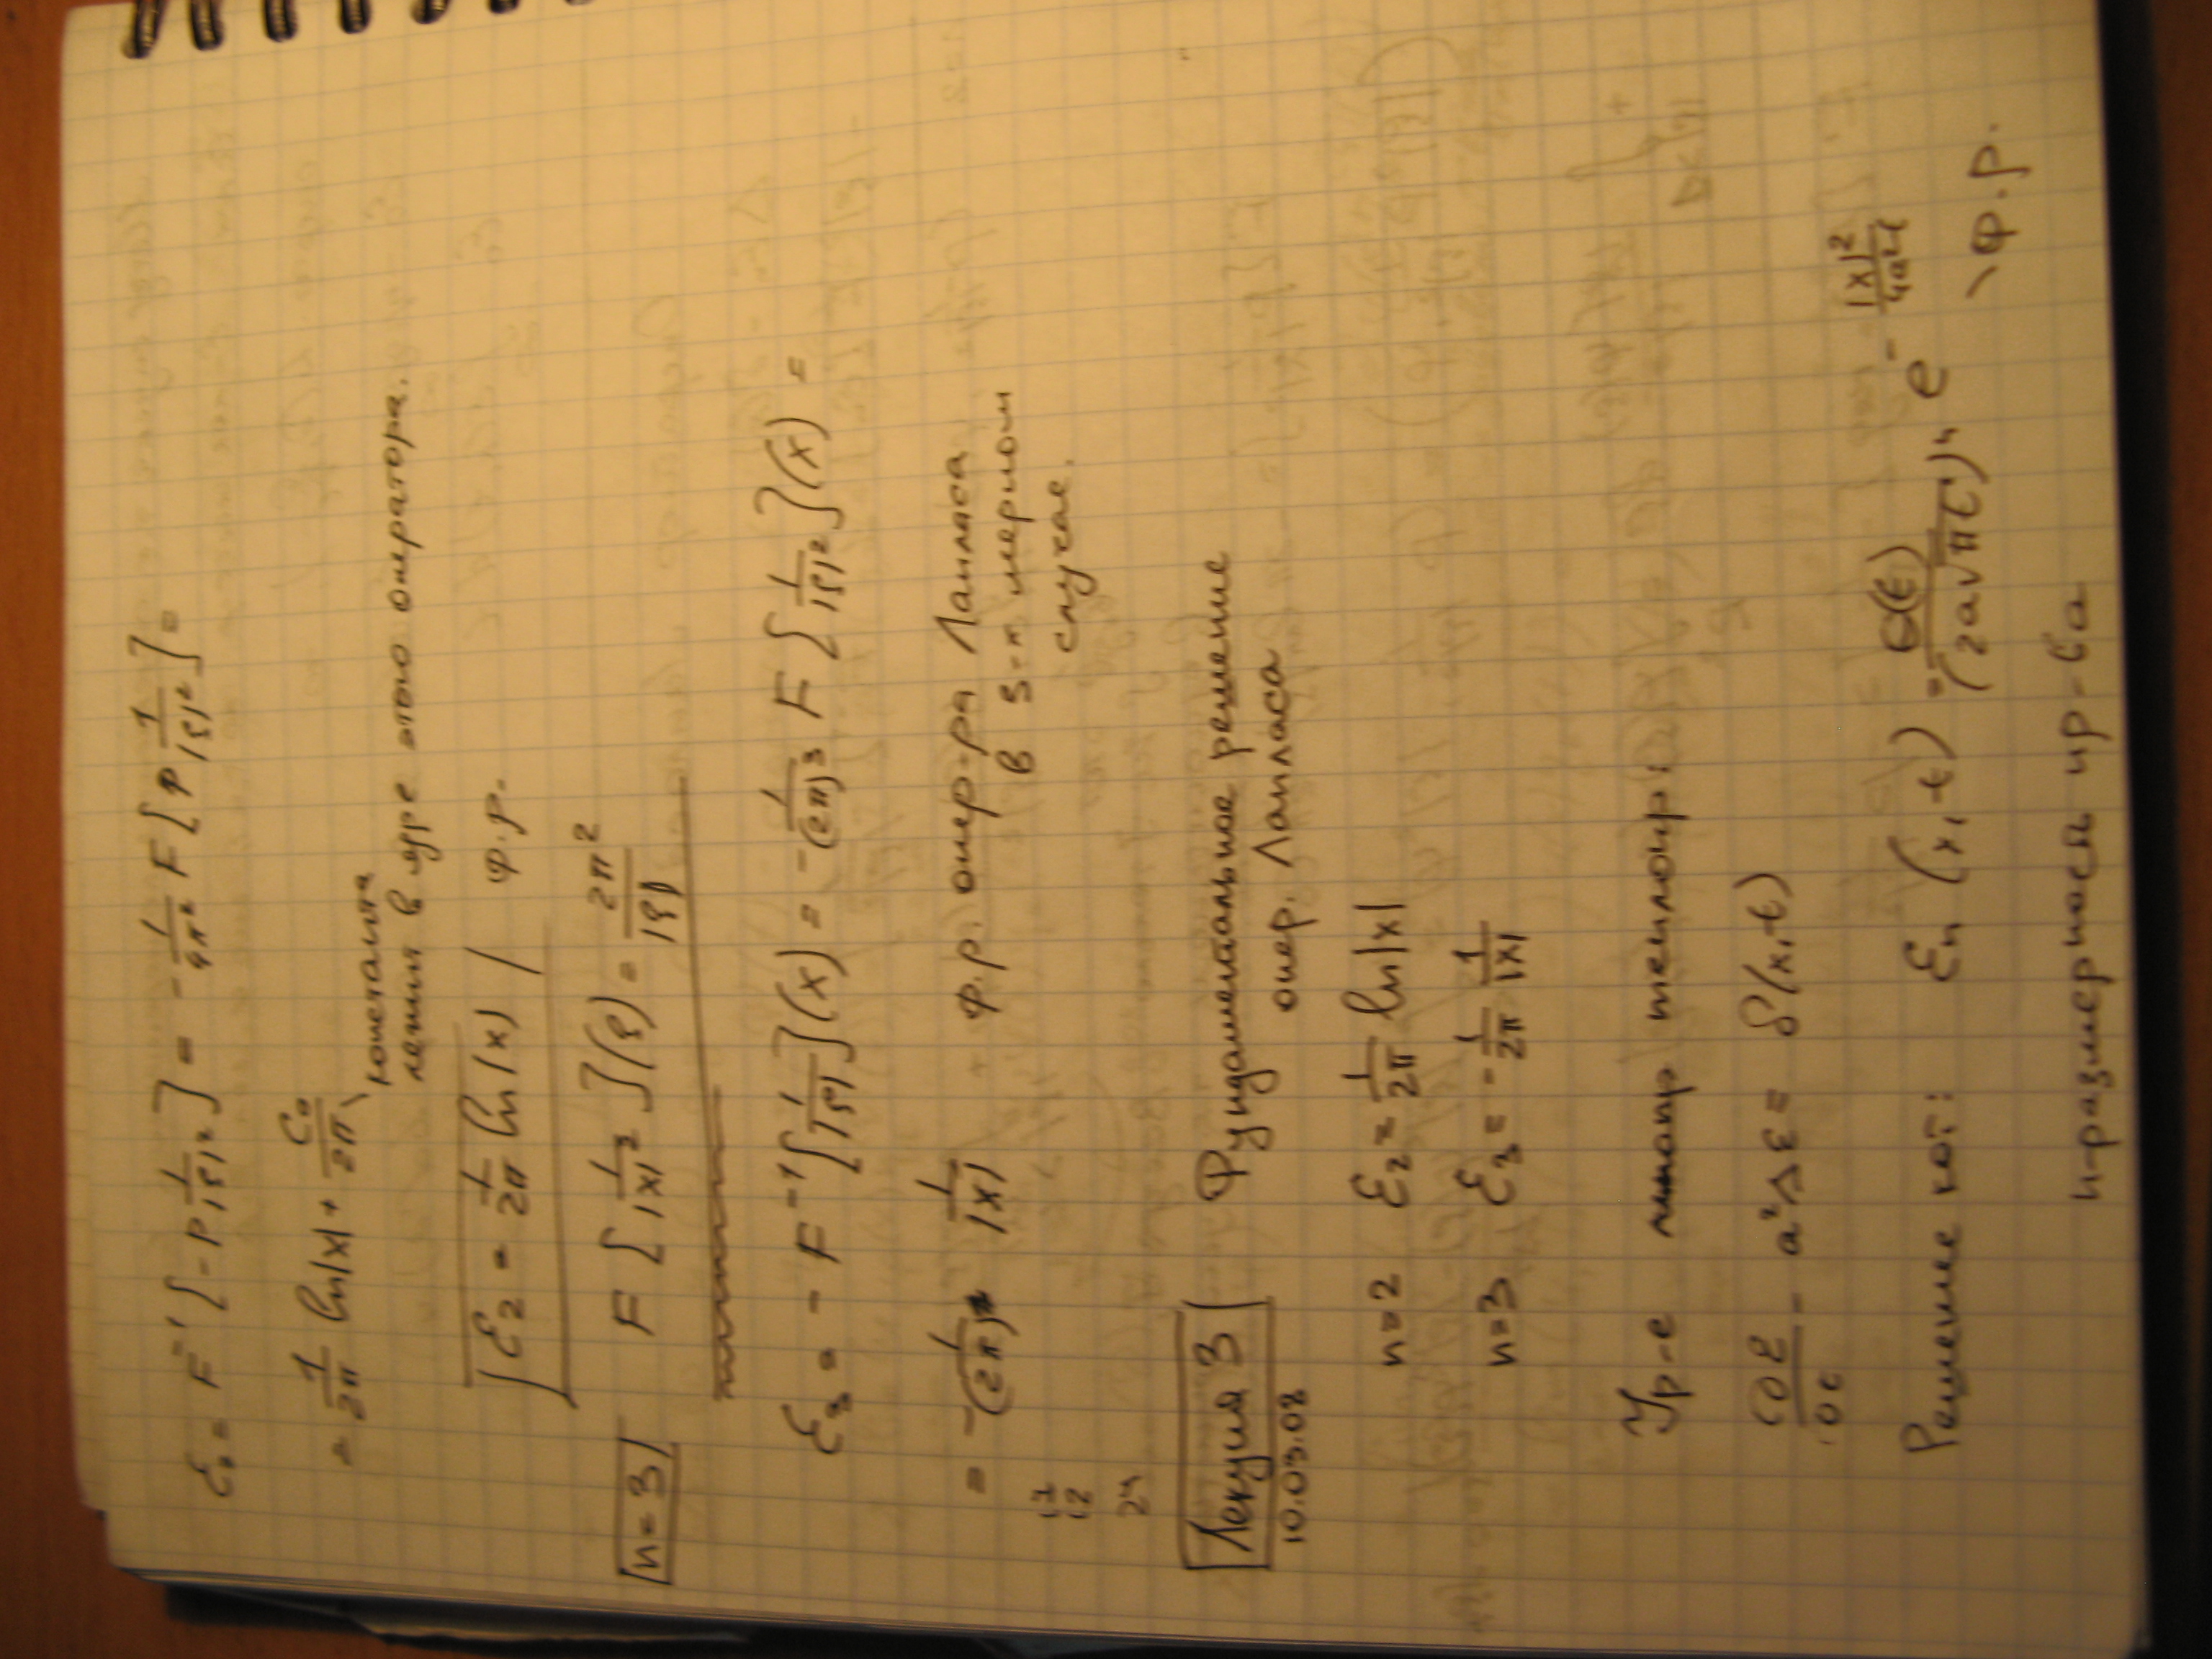 ℰ₂ = F⁻¹[-P 1/|ξ|²] = -1/4π² F[P 1/|ξ|²] =
= 1/2π ln|x| + C₀/2π
константа
лежит в ядре этого оператора.
ℰ₂ = 1/2π ln|x| ф.р.
n=3 F[1/|x|²](ξ) = 2π²/|ξ|
ℰ₃ = - F⁻¹[1/|ξ|²](x) = - 1/(2π)³ F[1/|ξ|²](x) =
= - 1/(2π)² 1/|x| ф.р. опер-ра Лапласа
в 3-х мерном
случае.
12
24
Лекция 3 Фундаментальное решение
10.03.08 опер. Лапласа
n=2 ℰ₂ = 1/2π ln|x|
n=3 ℰ₃ = - 1/2π 1/|x|
Ур-е теплопр:
∂ℰ/∂t - a²Δℰ = δ(x,t)
Решение кот: ℰₙ(x,t) = θ(t)/(2a√πt)ⁿ e^(-|x|²/4a²t)
\ ф.р.
n-размерность пр-ва